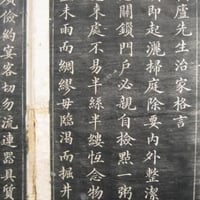 廬先生治家格言
即起灑掃庭除要內外整潔
關鎖門戶必親自檢點一粥
來處不易半絲半縷恆念物
未雨而綢繆毋臨渴而掘井
儉約宴客切勿流連器具質